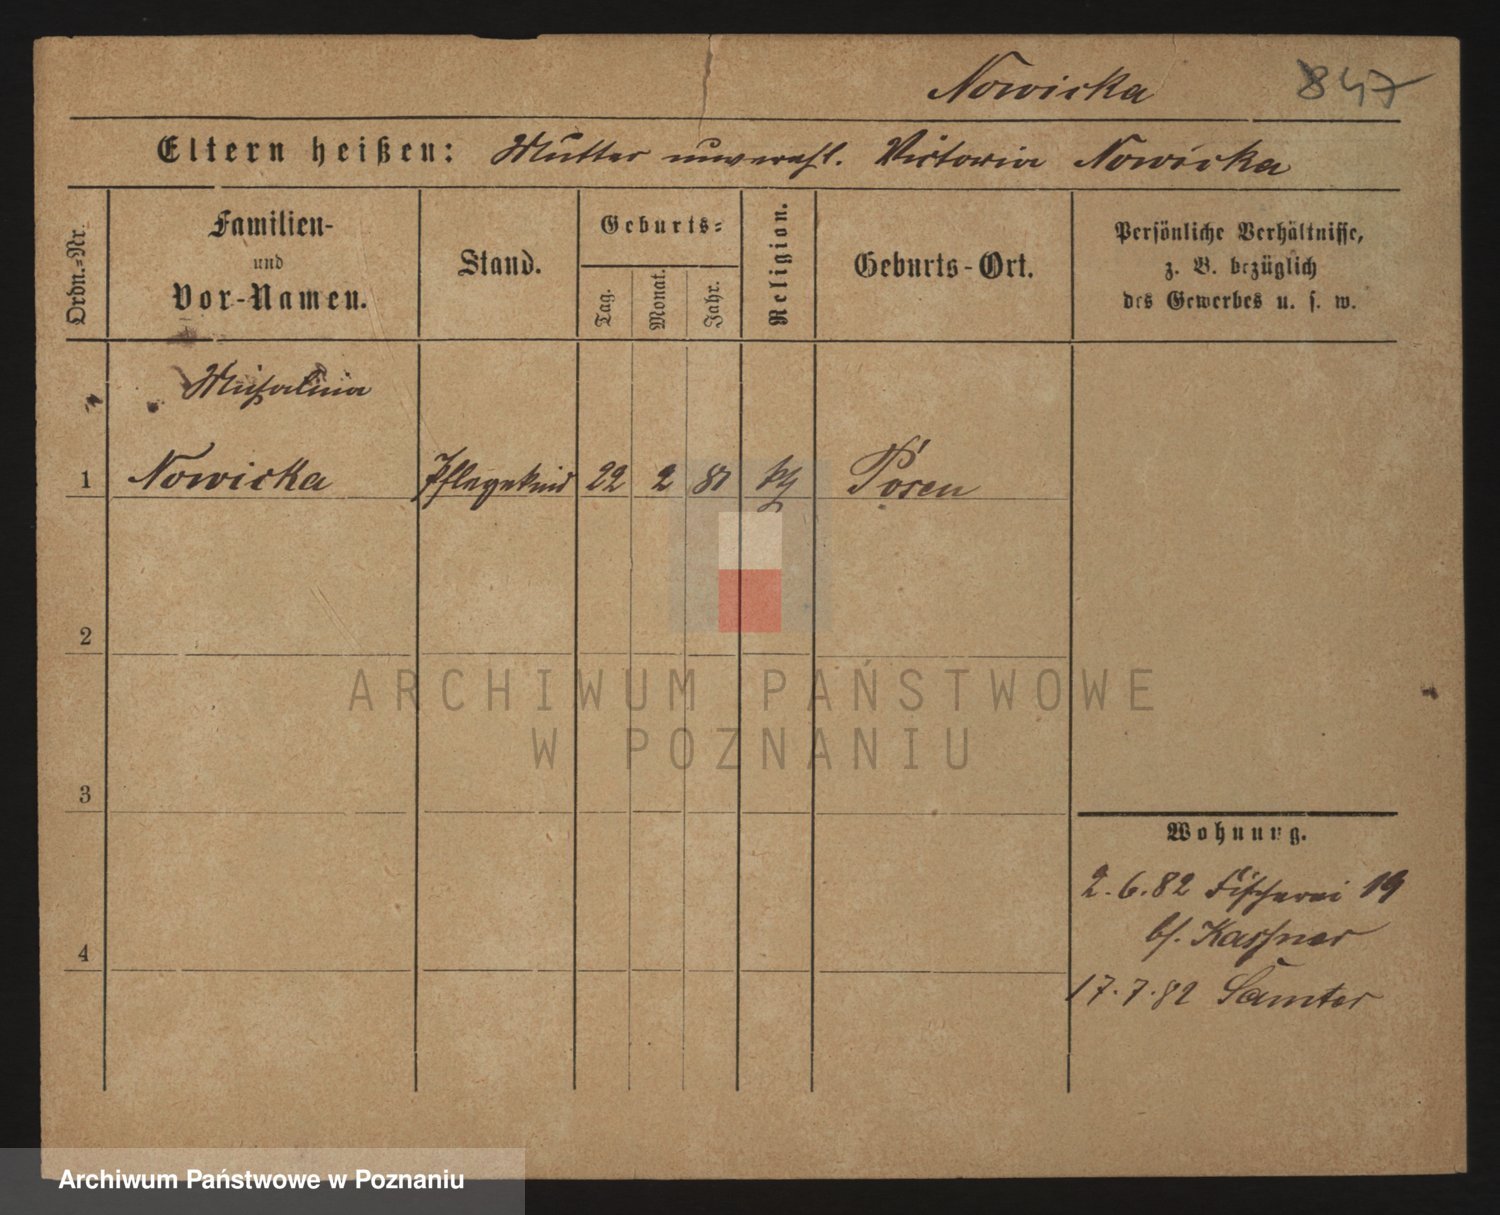 Nowicka 847
Eltern heißen: Mutter unverehl. Victoria Nowicka
Ordn.-Nr.
Familien-
und
Vor-Namen.
Stand.
Geburts-
Tag.
Monat.
Jahr.
Religion.
Geburts-Ort.
Persönliche Verhältnisse,
z. B. bezüglich
des Gewerbes u. s. w.
Michalina
1 Nowicka Pflegekind 22 2 81 kth Posen
2
3
4
Wohnung.
2.6.82 Fischerei 19
bh. Kassner
17.7.82 Samter
ARCHIWUM PAŃSTWOWE
W POZNANIU
Archiwum Państwowe w Poznaniu